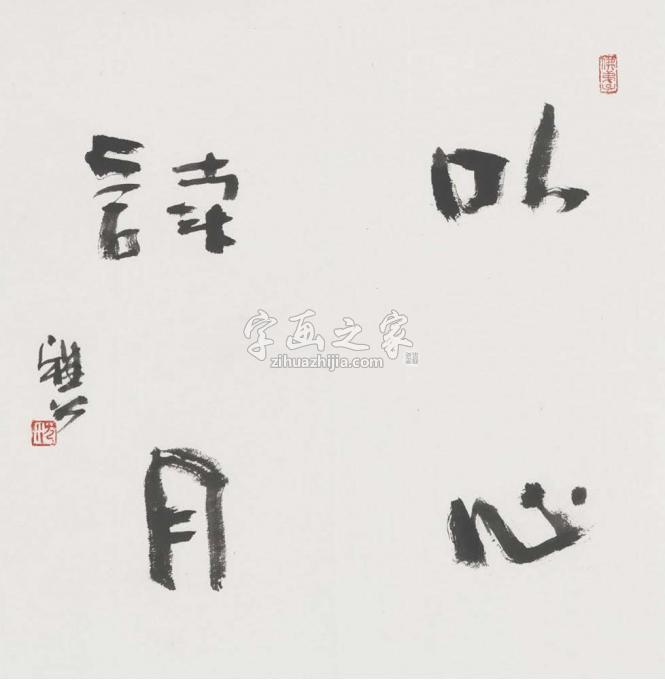 以心
讀月
字画之家
zihuazhijia.com